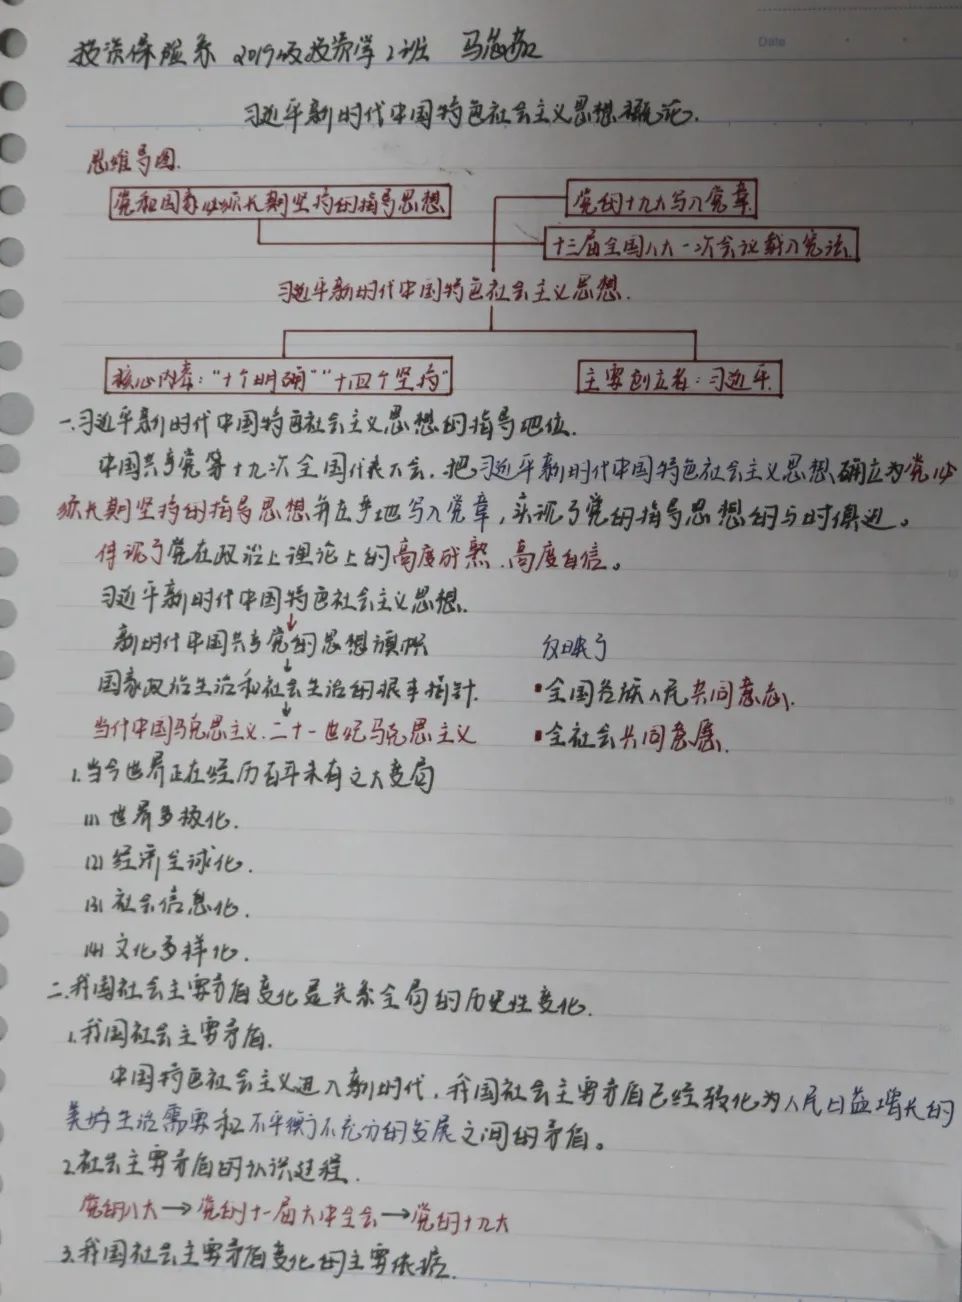 投资保险系 2019级投资学2班 马
Date
习近平新时代中国特色社会主义思想概论.
思维导图.
党和国家必须长期坚持的指导思想
党的十九大写入党章
十三届全国人大一次会议载入宪法.
习近平新时代中国特色社会主义思想.
核心内容:“十个明确”“十四个坚持”
主要创立者:习近平.
一.习近平新时代中国特色社会主义思想的指导地位.
中国共产党第十九次全国代表大会,把习近平新时代中国特色社会主义思想确立为党必
须长期坚持的指导思想并庄严地写入党章,实现了党的指导思想的与时俱进。
体现了党在政治上理论上的高度成熟、高度自信。
习近平新时代中国特色社会主义思想.
↓
新时代中国共产党的思想旗帜 反映了
↓
国家政治生活和社会生活的根本指针. ▪全国各族人民共同意志.
↓
当代中国马克思主义.二十一世纪马克思主义 ▪全社会共同意愿.
1.当今世界正在经历百年未有之大变局
(1) 世界多极化.
(2) 经济全球化.
(3) 社会信息化.
(4) 文化多样化.
二.我国社会主要矛盾变化是关系全局的历史性变化.
1.我国社会主要矛盾.
中国特色社会主义进入新时代,我国社会主要矛盾已经转化为人民日益增长的
美好生活需要和不平衡不充分的发展之间的矛盾。
2.社会主要矛盾的认识过程.
党的八大→党的十一届六中全会→党的十九大
3.我国社会主要矛盾变化的主要依据.